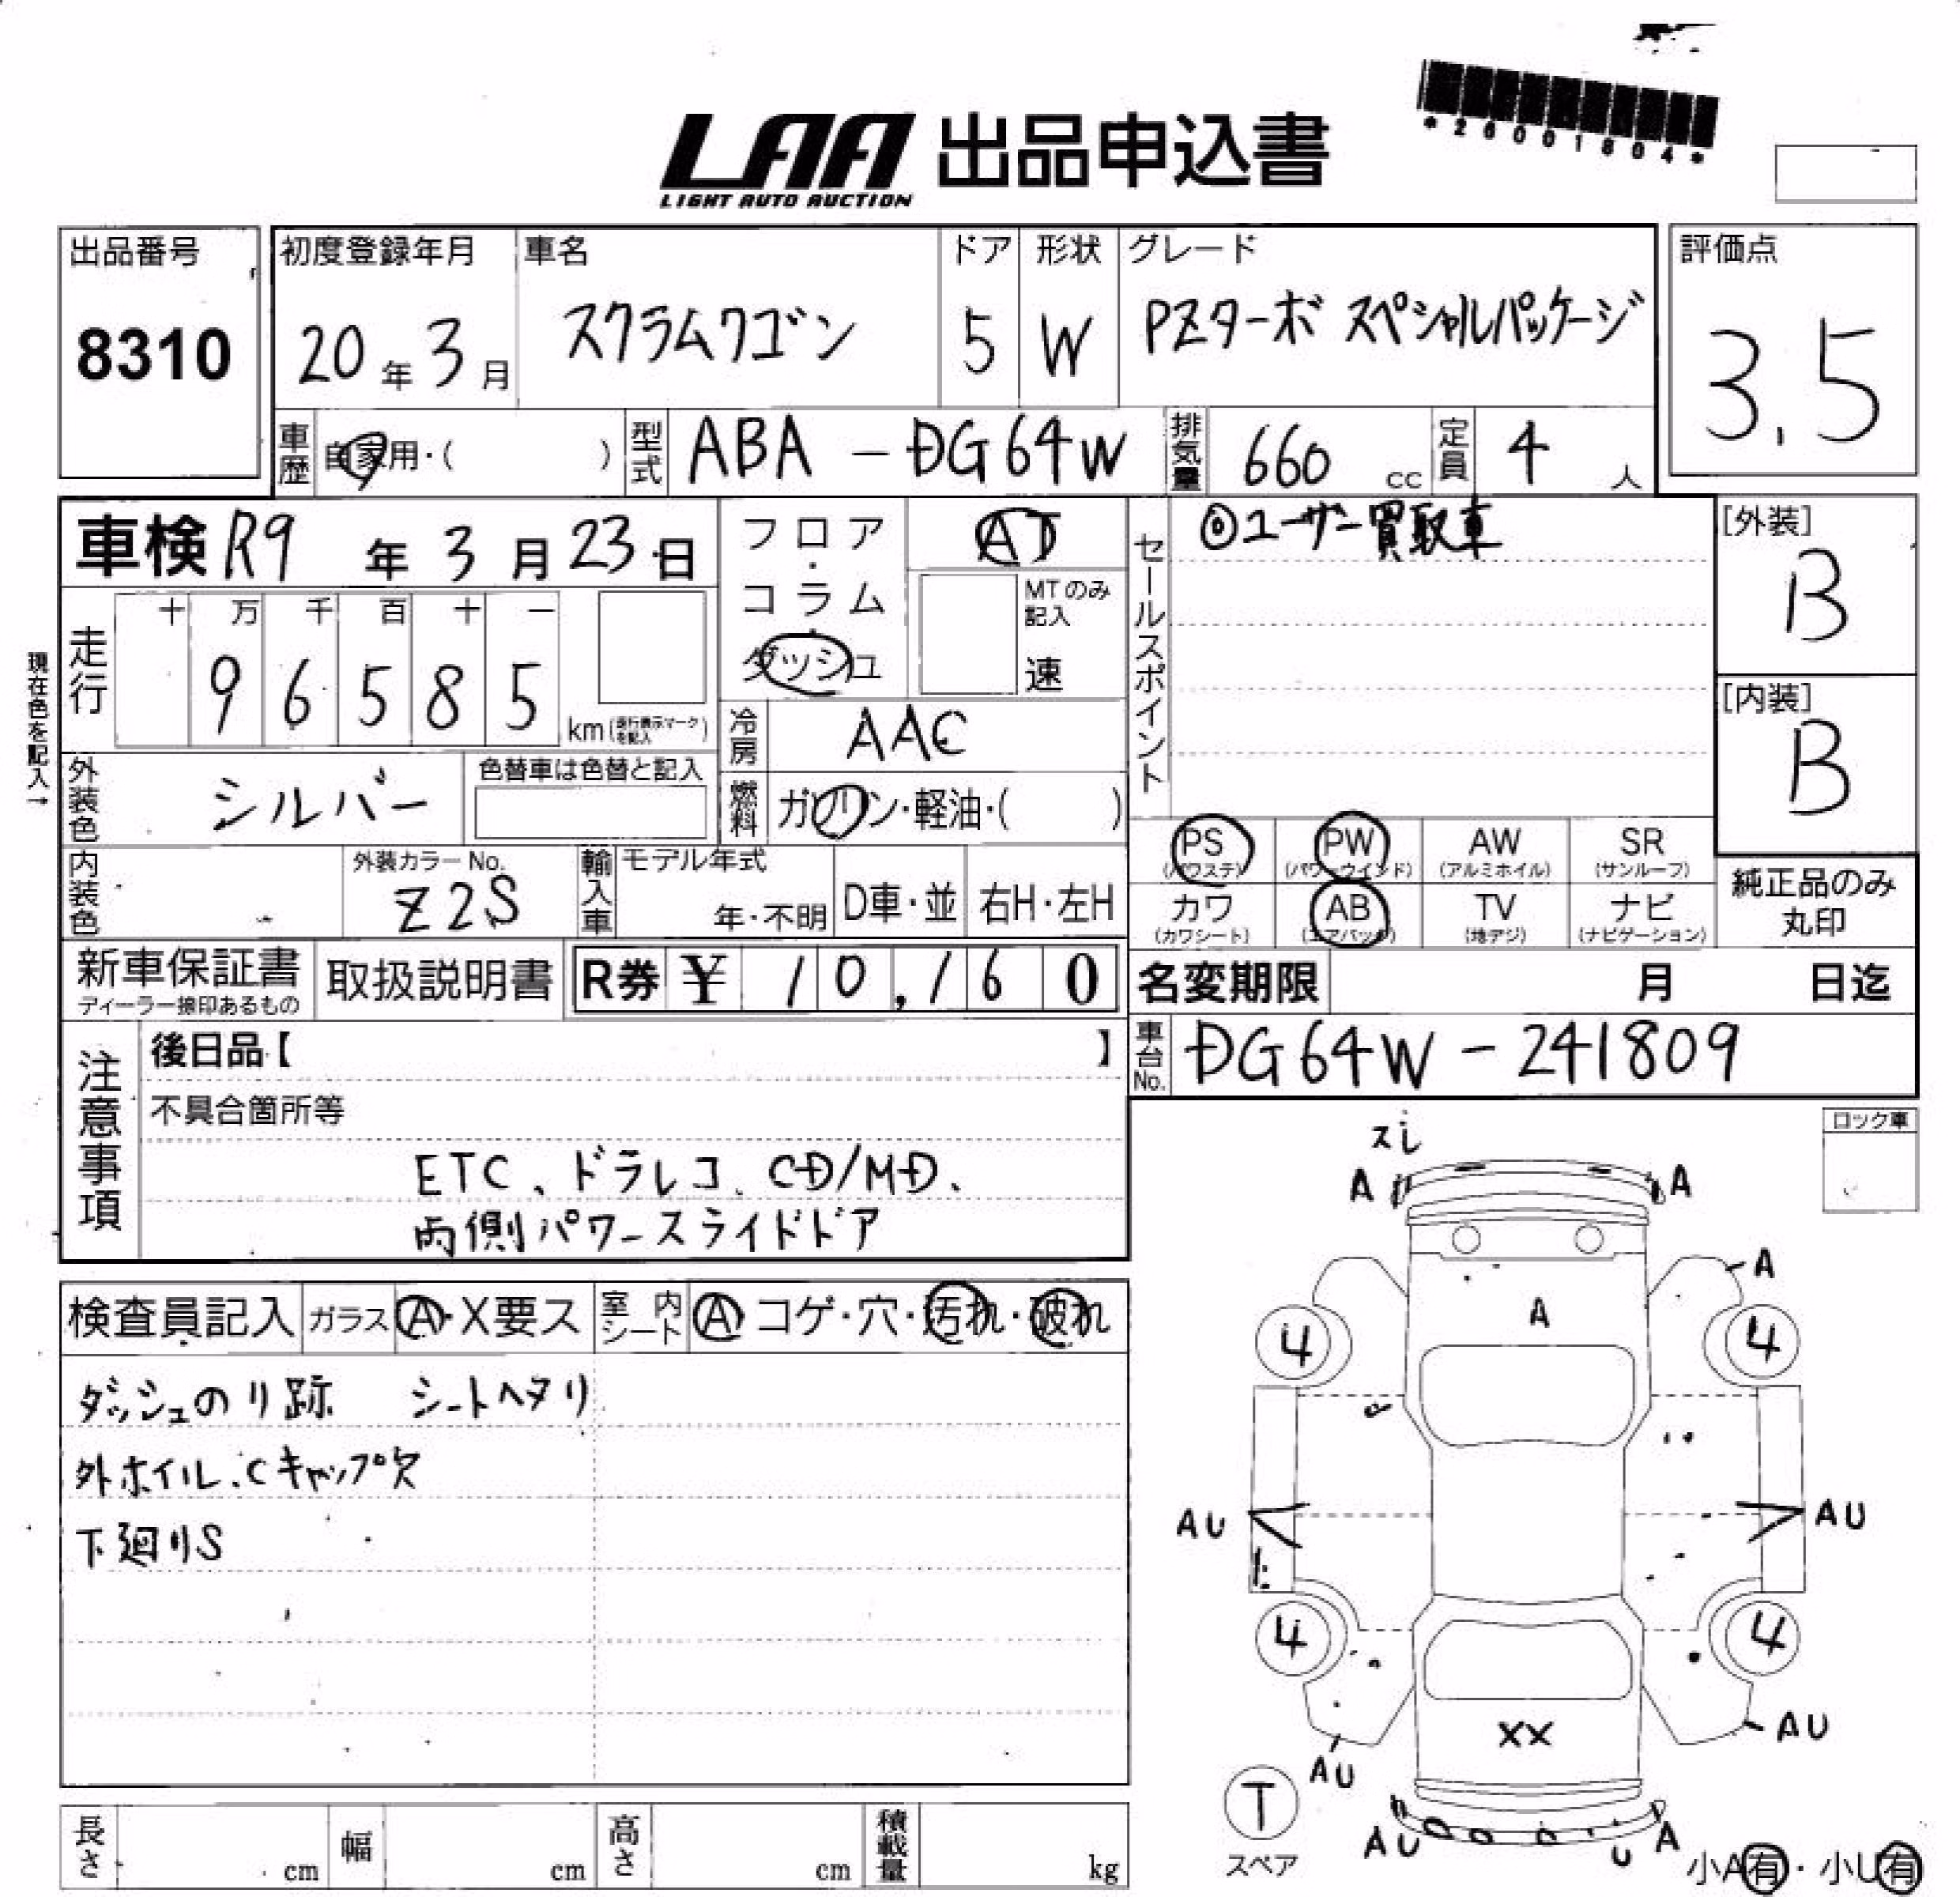 *26001804*
LAA 出品申込書
LIGHT AUTO AUCTION
出品番号
8310
初度登録年月
20年3月
車名
スクラムワゴン
ドア
5
形状
W
グレード
PZターボ スペシャルパッケージ
評価点
3.5
車歴 自家用・( )
型式 ABA-DG64W
排気量 660 cc
定員 4 人
車検 R9年3月23日
フロア・コラム・ダッシュ
AT
MTのみ記入
速
セールスポイント
◎ユーザー買取車
[外装]
B
[内装]
B
現在色を記入→
走行
十 万 千 百 十 一
9 6 5 8 5 km(走行表示マークを記入)
冷房 AAC
外装色 シルバー
色替車は色替と記入
燃料 ガソリン・軽油・( )
PS (パワステ)
PW (パワーウインド)
AW (アルミホイル)
SR (サンルーフ)
カワ (カワシート)
AB (エアバック)
TV (地デジ)
ナビ (ナビゲーション)
純正品のみ
丸印
内装色
外装カラーNo.
Z2S
輸入車
モデル年式
年・不明
D車・並
右H・左H
新車保証書
ディーラー捺印あるもの
取扱説明書
R券 ¥ 10,160
名変期限 月 日迄
車台No. DG64W-241809
注意事項
後日品【 】
不具合箇所等
ETC、ドラレコ、CD/MD、
両側パワースライドドア
ロック車
検査員記入
ガラス A・X要ス
室内シート A コゲ・穴・汚れ・破れ
ダッシュのり跡 シートヘタリ
外ホイル、Cキャップ欠
下廻りS
スレ
A A
A
A
4 4
AU AU
4 4
XX
AU AU
T
スペア
AU U A
小A有・小U有
長さ cm
幅 cm
高さ cm
積載量 kg